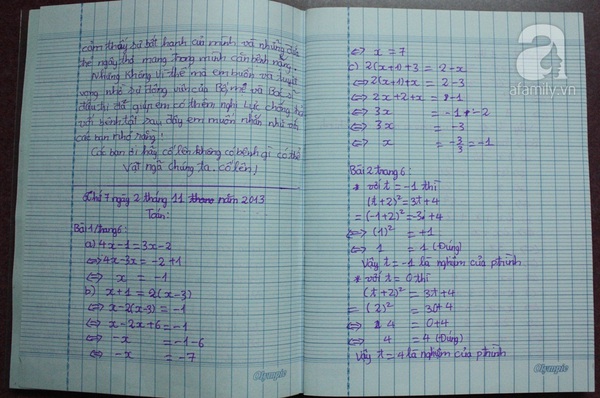 cảm thấy sự bất hạnh của mình và những đứa
thơ ngây thơ mang trong mình căn bệnh nặng.
Nhưng không vì thế mà em buồn và tuyệt
vọng nhờ sự động viên của Bố, mẹ và Bác sĩ
đầu thì để giúp em có thêm nghị lực chống
với bệnh tật sau đây em muốn nhắn nhủ với
các bạn nhỏ rằng!
Các bạn ơi hãy cố lên không có bệnh gì có thể
vật ngã chúng ta. Cố lên!
Thứ 7 ngày 2 tháng 11 năm 2013
Toán:
Bài 1 trang 6:
a) 4x-1 = 3x-2
⇔ 4x-3x = -2+1
⇔ x = -1
b) x+1 = 2(x-3)
⇔ x-2(x-3) = -1
⇔ x-2x+6 = -1
⇔ -x = -1-6
⇔ -x = -7
Olympic
⇔ x = 7
c) 2(x+1)+3 = 2-x
⇔ 2(x+1)+x = 2-3
⇔ 2x+2+x = -1
⇔ 3x = -1-2
⇔ 3x = -3
⇔ x = -3/3 = -1
Bài 2 trang 6:
* với t = -1 thì
(t+2)² = 3t+4
= (-1+2)² = -3+4
⇔ (1)² = +1
⇔ 1 = 1 (Đúng)
Vậy t = -1 là nghiệm của ptrình
* với t = 0 thì
(t+2)² = 3t+4
= (2)² = 30+4
⇔ 4 = 0+4
⇔ 4 = 4 (Đúng)
Vậy t = 4 là nghiệm của ptrình
Olympic
a
afamily.vn